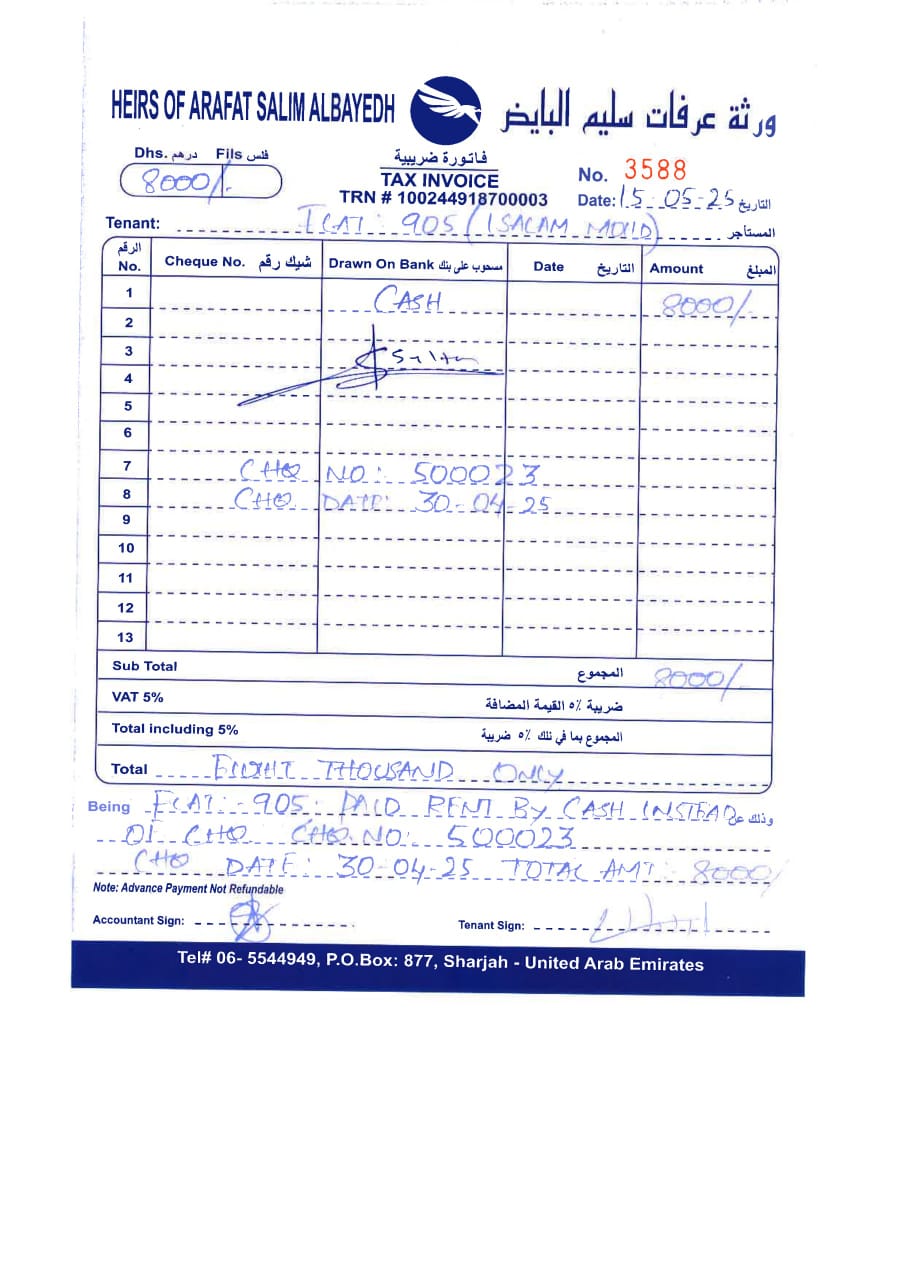 HEIRS OF ARAFAT SALIM ALBAYEDH ورثة عرفات سليم البايض
Dhs. درهم Fils فلس
8000/-
فاتورة ضريبية
TAX INVOICE
TRN # 100244918700003
No. 3588
Date: 15-05-25 التاريخ
Tenant: FLAT: 905 (ISALAM MOUD) المستأجر
الرقم No. Cheque No. شيك رقم Drawn On Bank مسحوب على بنك Date التاريخ Amount المبلغ
1 CASH 8000/-
2
3
4
5
6
7 CHQ NO: 500023
8 CHQ DATE: 30-04-25
9
10
11
12
13
Sub Total المجموع 8000/-
VAT 5% ضريبة ٥٪ القيمة المضافة
Total including 5% المجموع بما في ذلك ٥٪ ضريبة
Total EIGHT THOUSAND ONLY
Being FLAT:-905: PAID RENT BY CASH INSTEAD وذلك عن
OF CHQ CHQ NO: 500023
CHQ DATE: 30-04-25 TOTAL AMT: 8000/
Note: Advance Payment Not Refundable
Accountant Sign: Tenant Sign:
Tel# 06- 5544949, P.O.Box: 877, Sharjah - United Arab Emirates